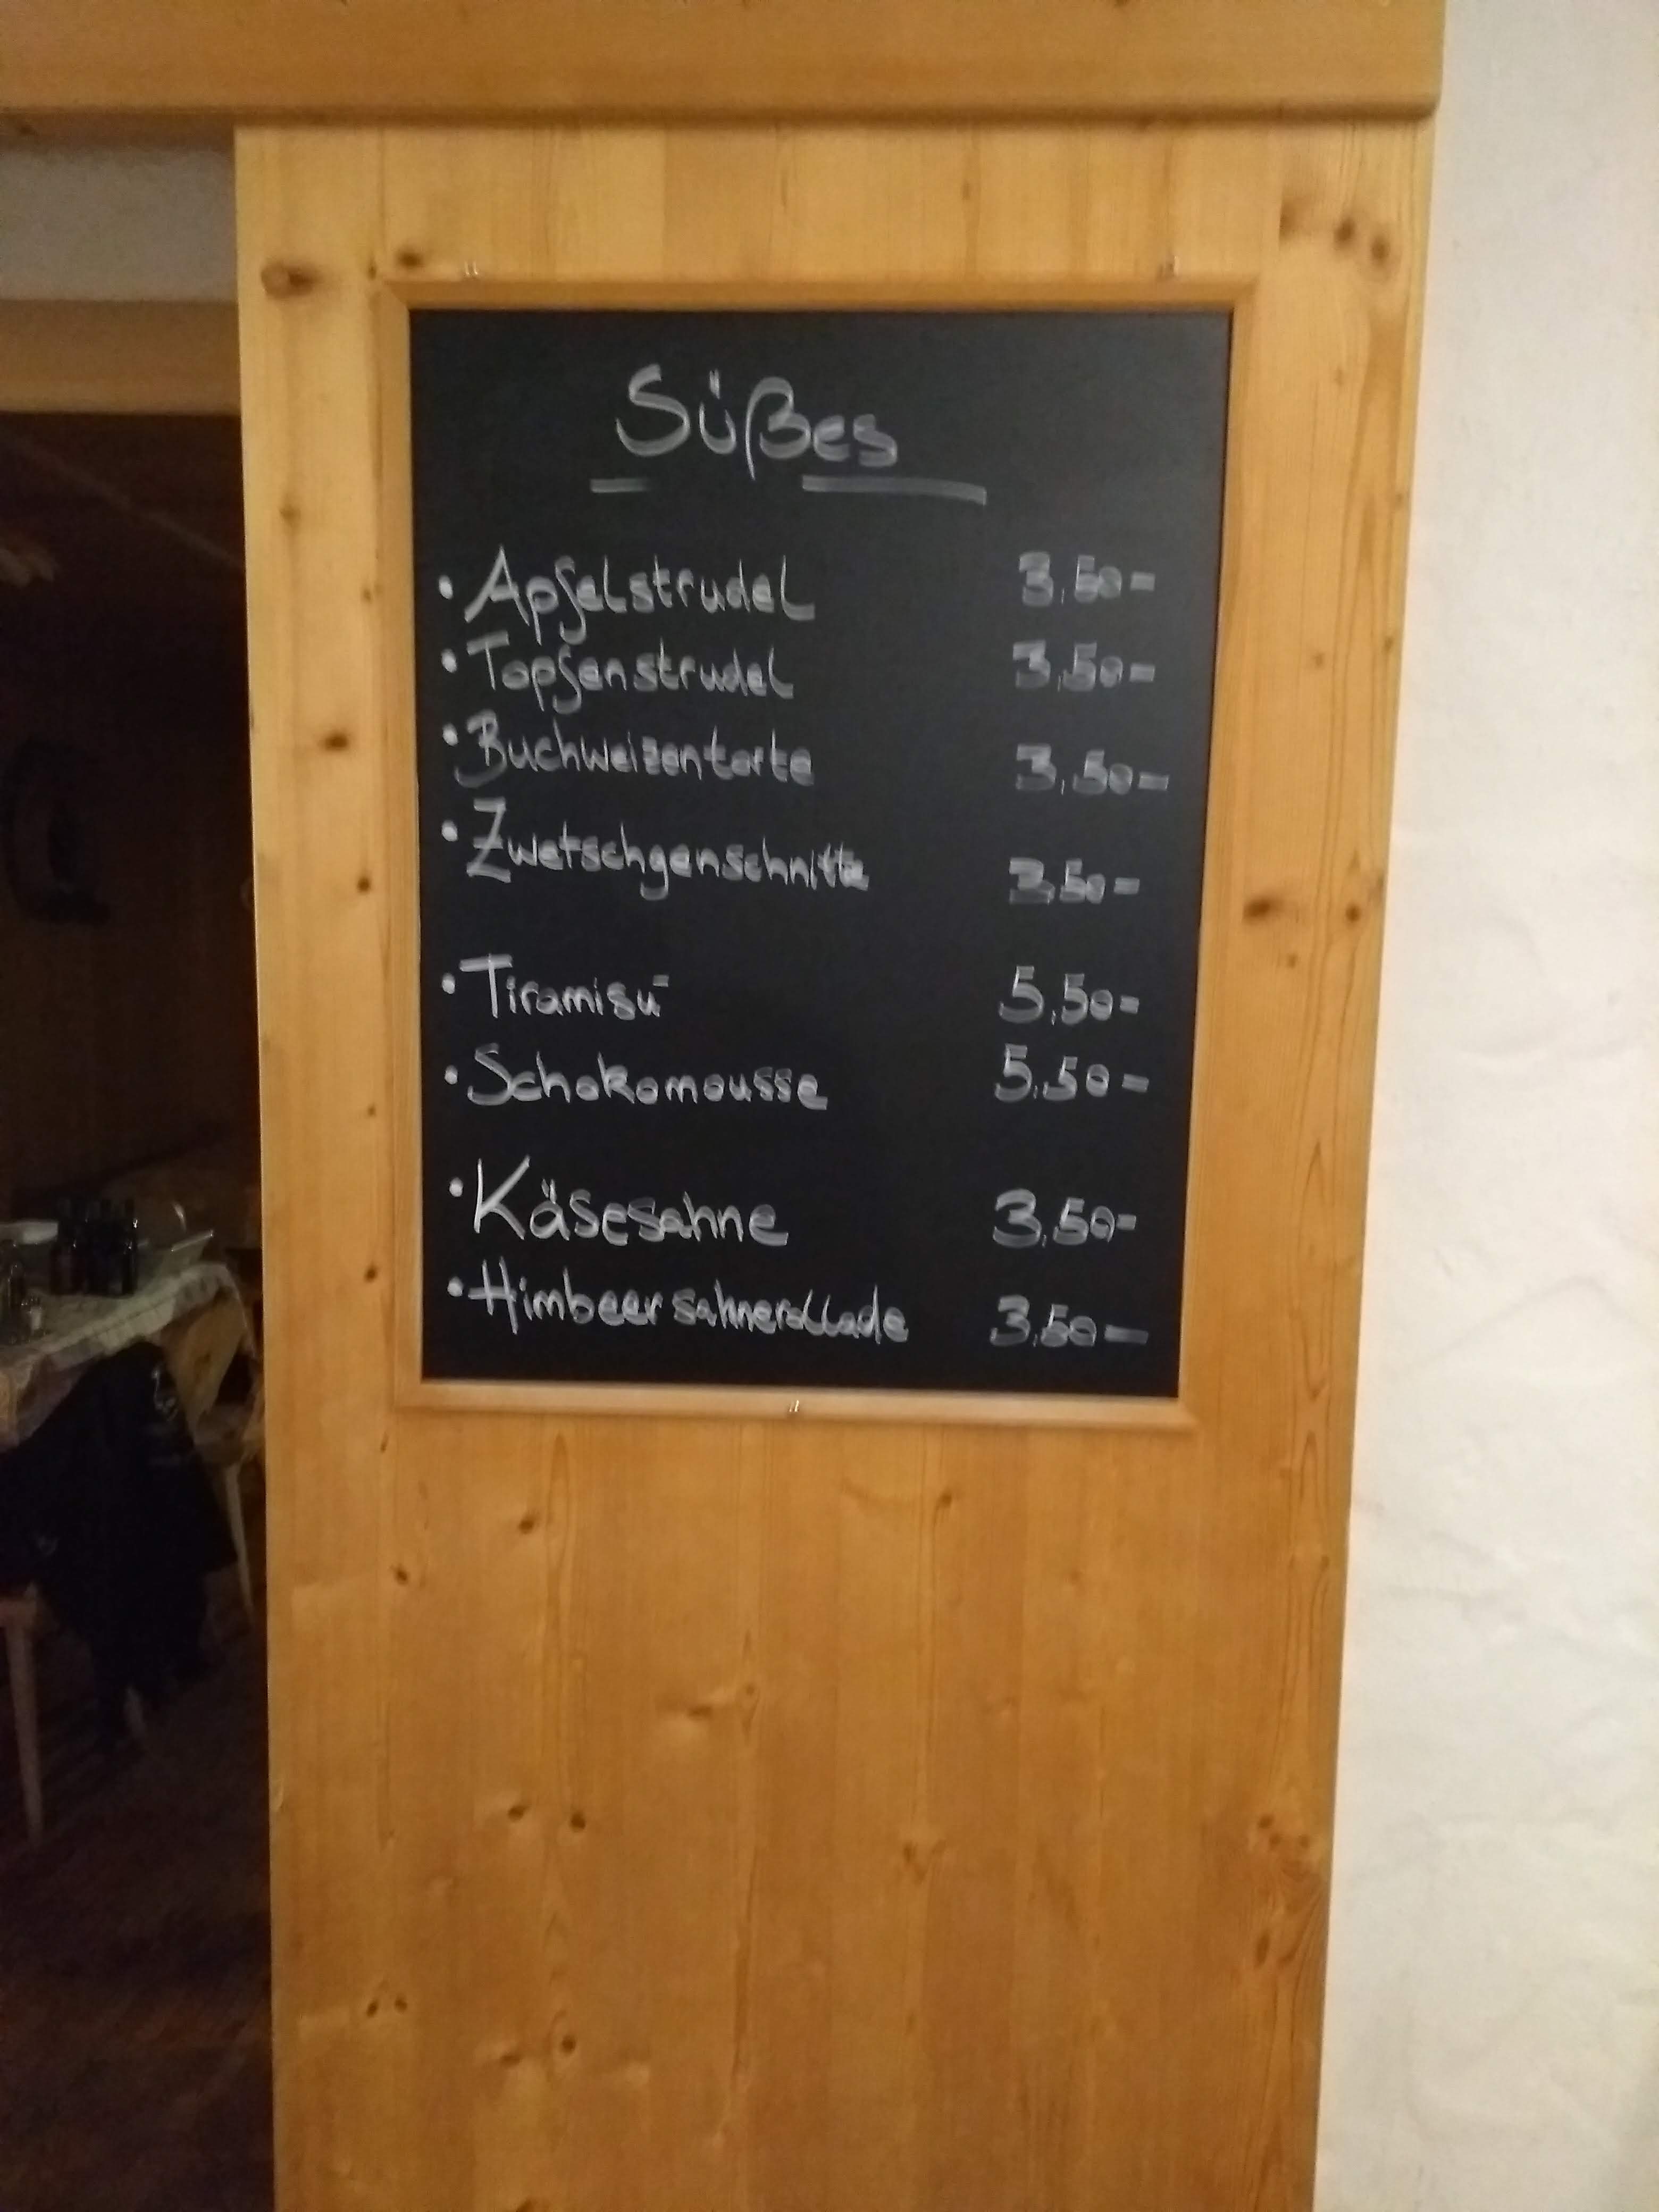 Süßes
• Apfelstrudel 3,50-
• Topfenstrudel 3,50-
• Buchweizentorte 3,50-
• Zwetschgenschnitte 3,50-
• Tiramisu 5,50-
• Schokomousse 5,50-
• Käsesahne 3,50-
• Himbeersahnerollade 3,50-